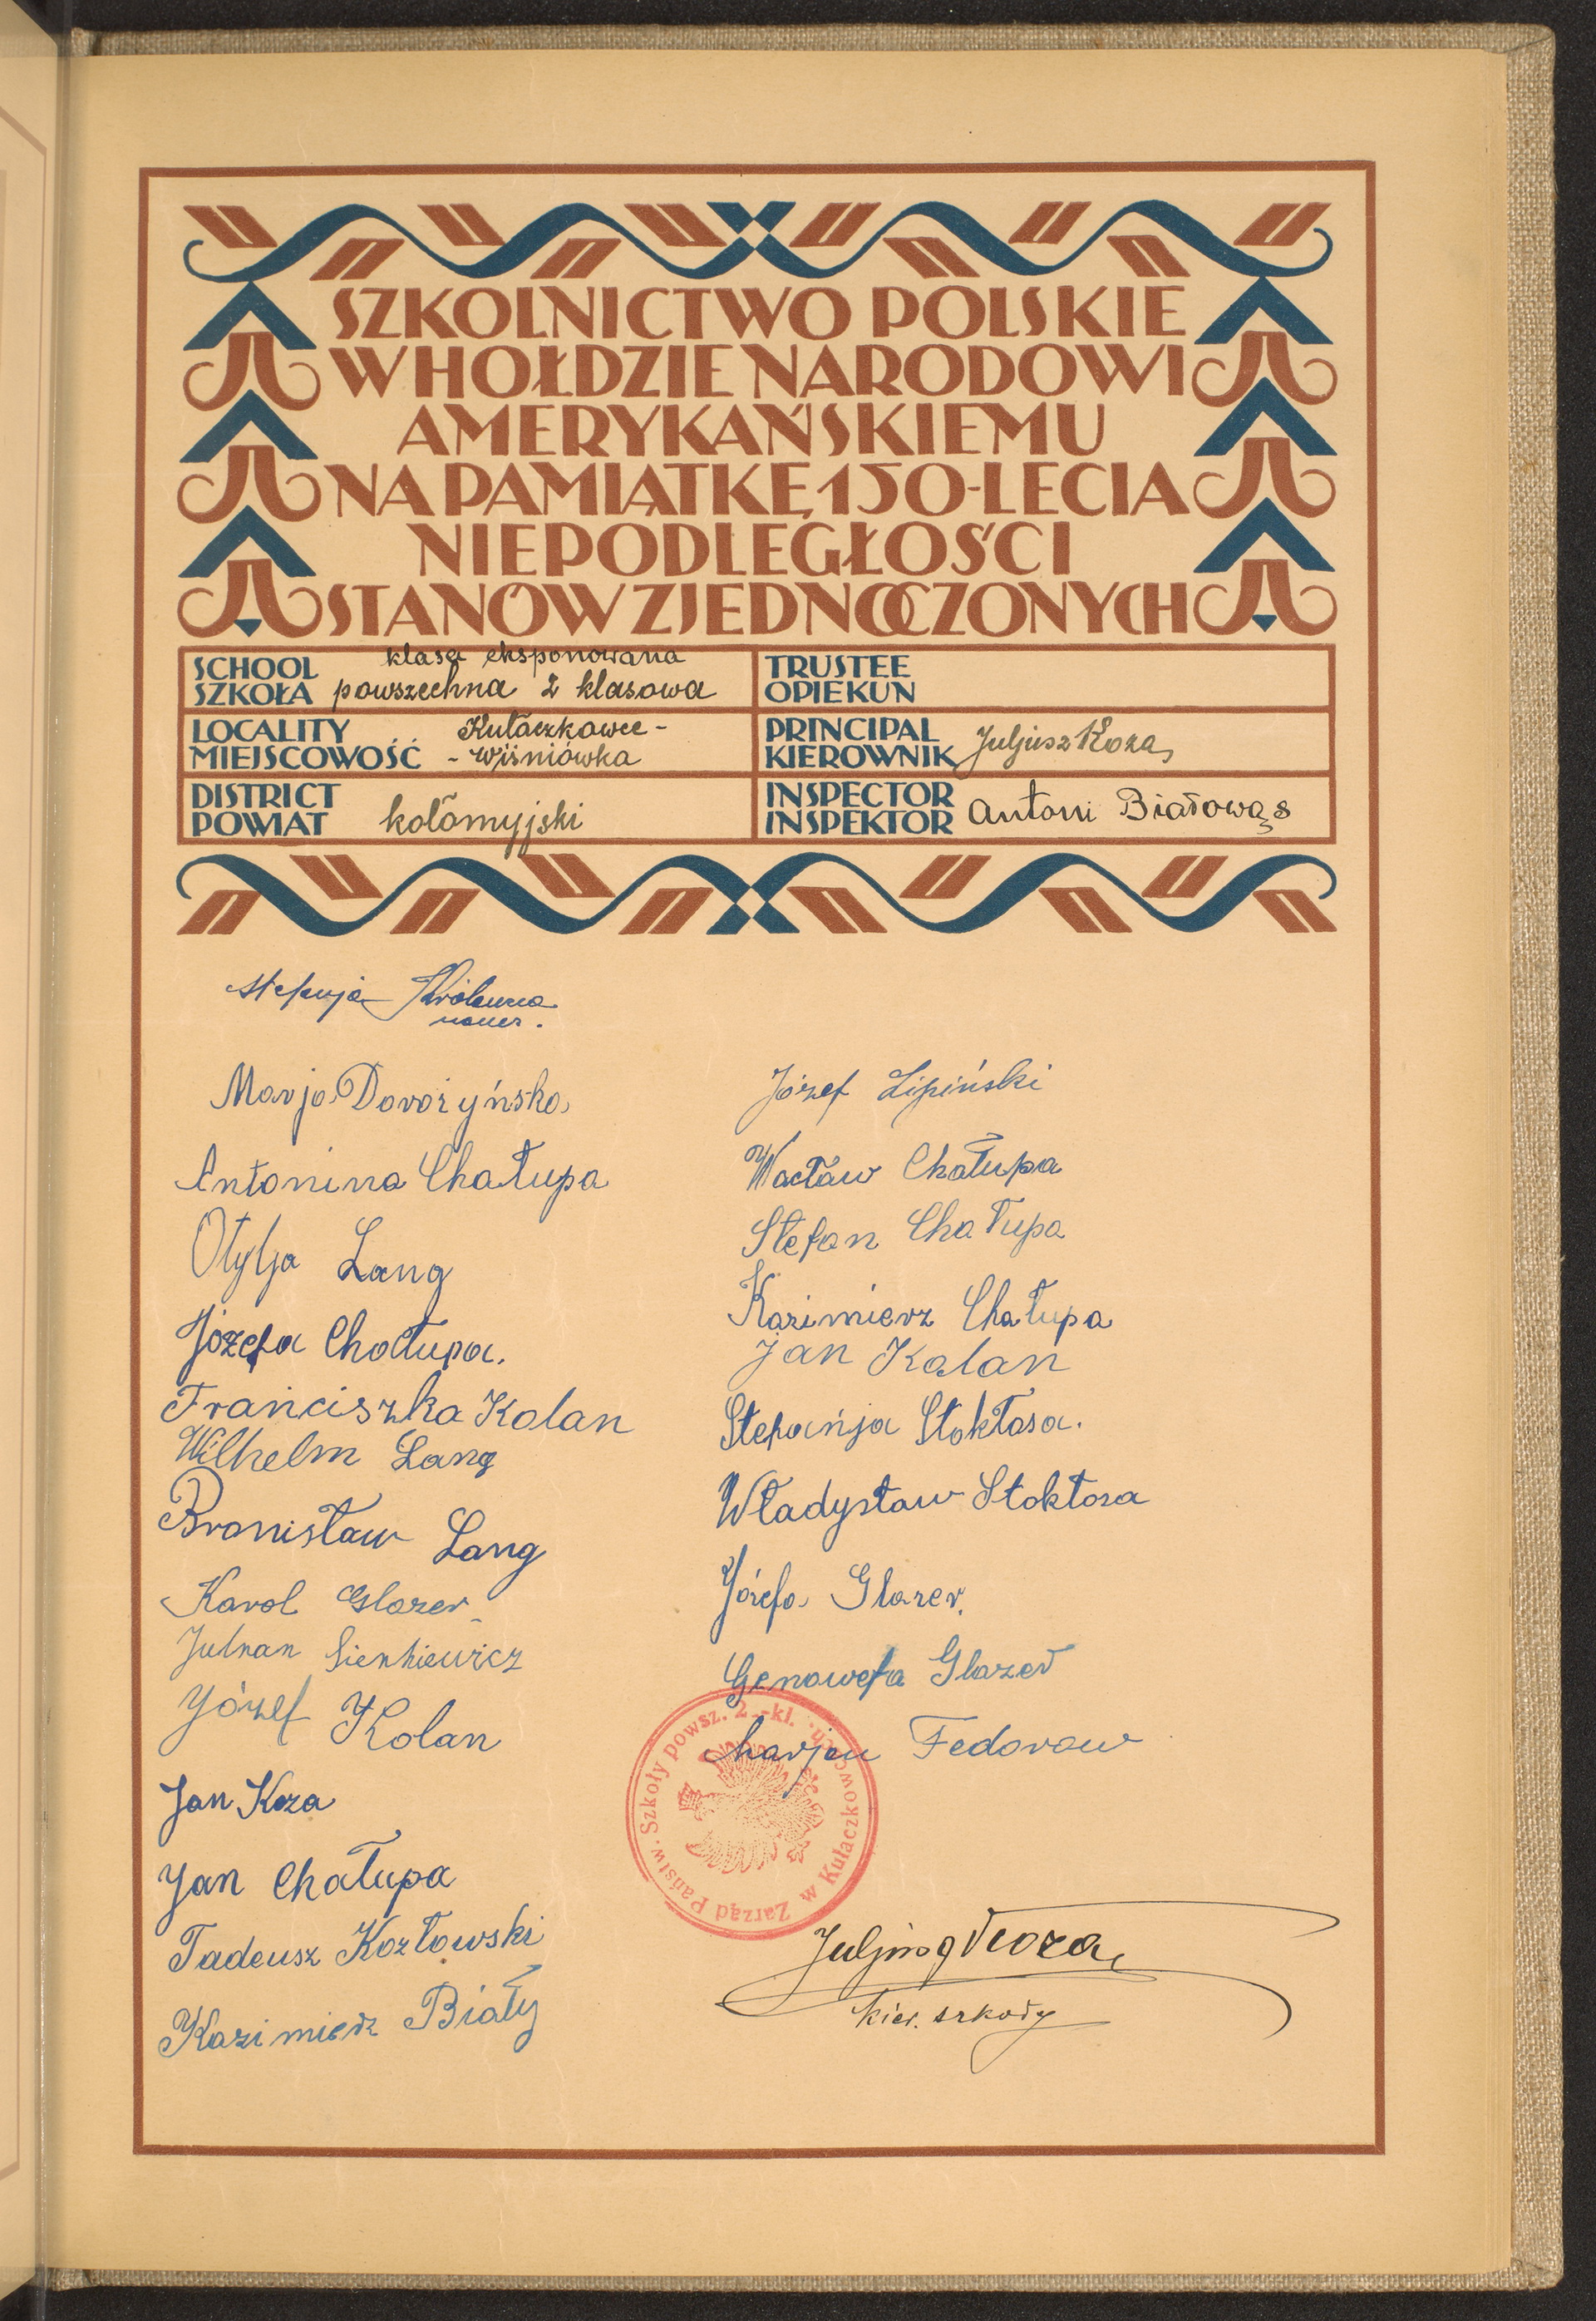 SZKOLNICTWO POLSKIE
W HOŁDZIE NARODOWI
AMERYKAŃSKIEMU
NA PAMIĄTKĘ 150-LECIA
NIEPODLEGŁOŚCI
STANÓW ZJEDNOCZONYCH
SCHOOL
SZKOŁA
klasa eksponowana
powszechna 2 klasowa
LOCALITY
MIEJSCOWOŚĆ
Kułaczkowce -
- Wiśniówka
DISTRICT
POWIAT
kołomyjski
TRUSTEE
OPIEKUN
PRINCIPAL
KIEROWNIK
Juljusz Koza
INSPECTOR
INSPEKTOR
Antoni Białowąs
Stefanja Królowna
naucz.
Marja Dorożyńska
Antonina Chałupa
Otylja Lang
Józefa Chałupa.
Franciszka Kolan
Wilhelm Lang
Bronisław Lang
Karol Glazer
Julian Sienkiewicz
Józef Kolan
Jan Koza
Jan Chałupa
Tadeusz Kozłowski
Kazimierz Biały
Józef Lipiński
Wacław Chałupa
Stefan Chałupa
Kazimierz Chałupa
Jan Kolan
Stefanja Stokłosa.
Władysław Stokłosa
Józefa Glazer.
Genowefa Glazer
Fedorow
Zarząd Państw. Szkoły powsz. 2.-kl. w Kułaczkowcach.
Juljusz Koza
kier. szkoły